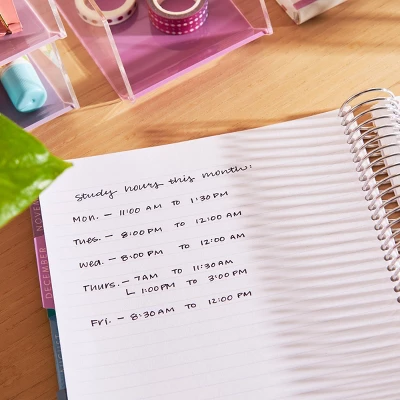 study hours this month:
Mon. - 11:00 AM TO 1:30 PM
Tues. - 8:00 PM TO 12:00 AM
Wed. - 8:00 PM TO 12:00 AM
Thurs. - 7 AM TO 11:30 AM
1:00 PM TO 3:00 PM
Fri. - 8:30 AM TO 12:00 PM
NOVE
DECEMBER